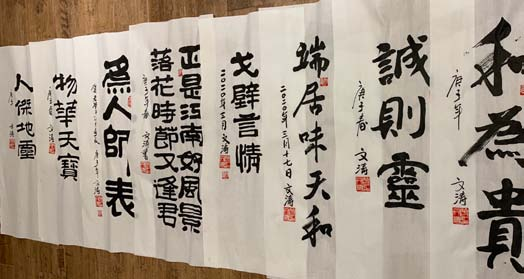 和為貴
庚子年 文濤
誠則靈
庚子春 文濤
端居味天和
二〇二〇年三月十七日 文濤
戈壁言情
二〇二〇年三月 文濤
正是江南好風景
落花時節又逢君
庚子年春 文濤書
為人師表
物華天寶
文濤
人傑地靈
文濤